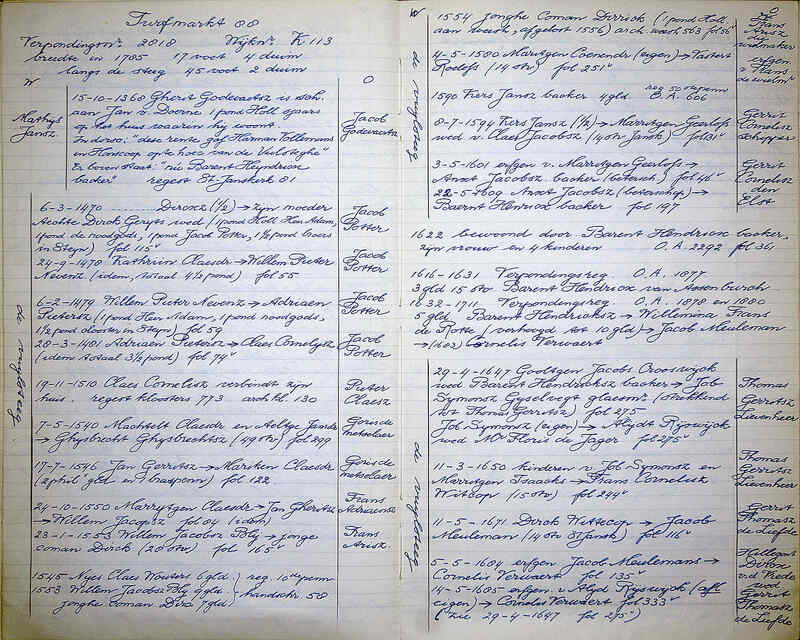 Turfmarkt 88
Verpondingnr. 2818 Wijknr. K 113
breedte in 1785 17 voet 4 duim
langs de steeg 45 voet 2 duim
W O
Mathys
Jansz.
15-10-1360 Gherit Godevaertsz is sch.
aan Jan v. Doerne 1 pond Holl. sjaars
op het huis waarin hij woont.
In dorso: "deze rente gaf Harman Tollemans
en Honscoop op te hoec van de Vuilsteghe"
Er boven staat "nu Barent Heyndricx
backer" regest St. Janskerk 81
Jacob
Godevaertsz
de vuylesteeg
6-3-1470 Dircxz (½) → zijn moeder
Aechte Dirck Geryts wed (1 pond Holl Hm Adam,
1 pond de noodgods, 1 pond Jacob Potter, 1½ pond broers
in Steyn) fol 115v
Jacob
Potter
24-9-1478 Kathrijn Claesdr → Willem Pieter
Nevenz (idem, totaal 4½ pond) fol 55
Jacob
Potter
6-2-1479 Willem Pieter Nevenz → Adriaen
Pietersz (1 pond Hm Adam, 1 pond noodgods,
1½ pond clooster in Steyn) fol 59
Jacob
Potter
28-3-1481 Adriaen Pietersz → Claes Cornelysz
(idem totaal 3½ pond) fol 79v
Jacob
Potter
19-11-1510 Claes Cornelisz verbondt zijn
huis. regest kloosters 773 arch bl. 130
Pieter
Claesz
7-5-1540 Machtelt Claesdr en Aeltge Jansdr
→ Ghysbrecht Ghysbrechtsz (49 str) fol 299
Goris de
metselaer
17-7-1546 Jan Gerritsz → Mariken Claesdr
(2 phil gld en 1 braspenn) fol 122
Goris de
metselaer
24-10-1550 Marrytgen Claesdr → Jan Gheritsz
→ Willem Jacopsz fol 84 (idem)
Frans
Adriaensz
23-1-1553 Willem Jacobsz Bly → jonge
coman Dirck (20 str) fol 165v
Frans
Arisz.
1545 Nyes Claes Wouters 6 gld. reg. 10de penn
1553 Willem Jacobsz Bly 9 gld. handschr 58
jonghe coman Dirx (7 gld)
W O
de vuylesteeg
1554 Jonghe Coman Dirrick (1 pond Holl.
aan weesh, afgelost 1556) arch weesh 563 fol 56v
Frans
Arisz
wielmaker
4-5-1580 Marritgen Coenendr (eigen) → Vastert
Roelofs (14 str) fol 251v
erfgen.
v. Frans
de wielm.
1590 Kiers Jansz backer 4 gld reg 50ste penn
O.A. 606
8-7-1594 Kiers Jansz (½) → Marritgen Geerlofs
wed v. Claes Jacobsz (14 str Jansk) fol 31v
Gerrit
Cornelisz
schipper
3-5-1601 erfgen v. Marritgen Geerlofs →
Anoot Jacobsz backer (betersch) fol 46v
Gerrit
Cornelisz
den
Elst
22-5-1609 Anoot Jacobsz (beterschap) →
Baernt Hendricx backer fol 197
1622 bewoond door Barent Hendricx backer,
zijn vrouw en 4 kinderen O.A. 2292 fol 361
1616-1631 Verpondingsreg. O.A. 1877
3 gld 15 str Barent Hendricx van Assenburch
1632-1711 Verpondingsreg O.A. 1878 en 1880
5 gld Barent Hendricksz → Willemina Frans
de Rotte (verhoogd tot 10 gld) → Jacob Meuleman
→ (1682) Cornelis Verwaert
de vuylesteeg
29-4-1647 Gooltgen Jacobs Crooswijck
wed Barent Hendricksz backer → Job
Symonsz Gyselvogt glaesm. (strekkend
tot Thomas Gerritsz) fol 275
Job Symonsz (eigen) → Alydt Rijswijck
wed Mr Floris de Jager fol 275v
Thomas
Gerritsz
Lievenheer
11-3-1650 kinderen v. Job Symonsz en
Marritgen Isaacks → Frans Cornelisz
Witcop (15 str) fol 244v
Thomas
Gerritsz
Lievenheer
11-5-1671 Dirck Wittecop → Jacob
Meuleman (14 str St Jansk) fol 116v
Gerrit
Thomasz
de Liefde
5-5-1684 erfgen Jacob Meulemans →
Cornelis Verwaert fol 135v
14-5-1685 erfgen v. Alyd Rijswijck (afl.
eigen) → Cornelis Verwaert fol 333v
(zie 29-4-1647 fol 275)
Hillegont
Dircx
v.d. Vrede
wed
Gerrit
Thomasz
de Liefde